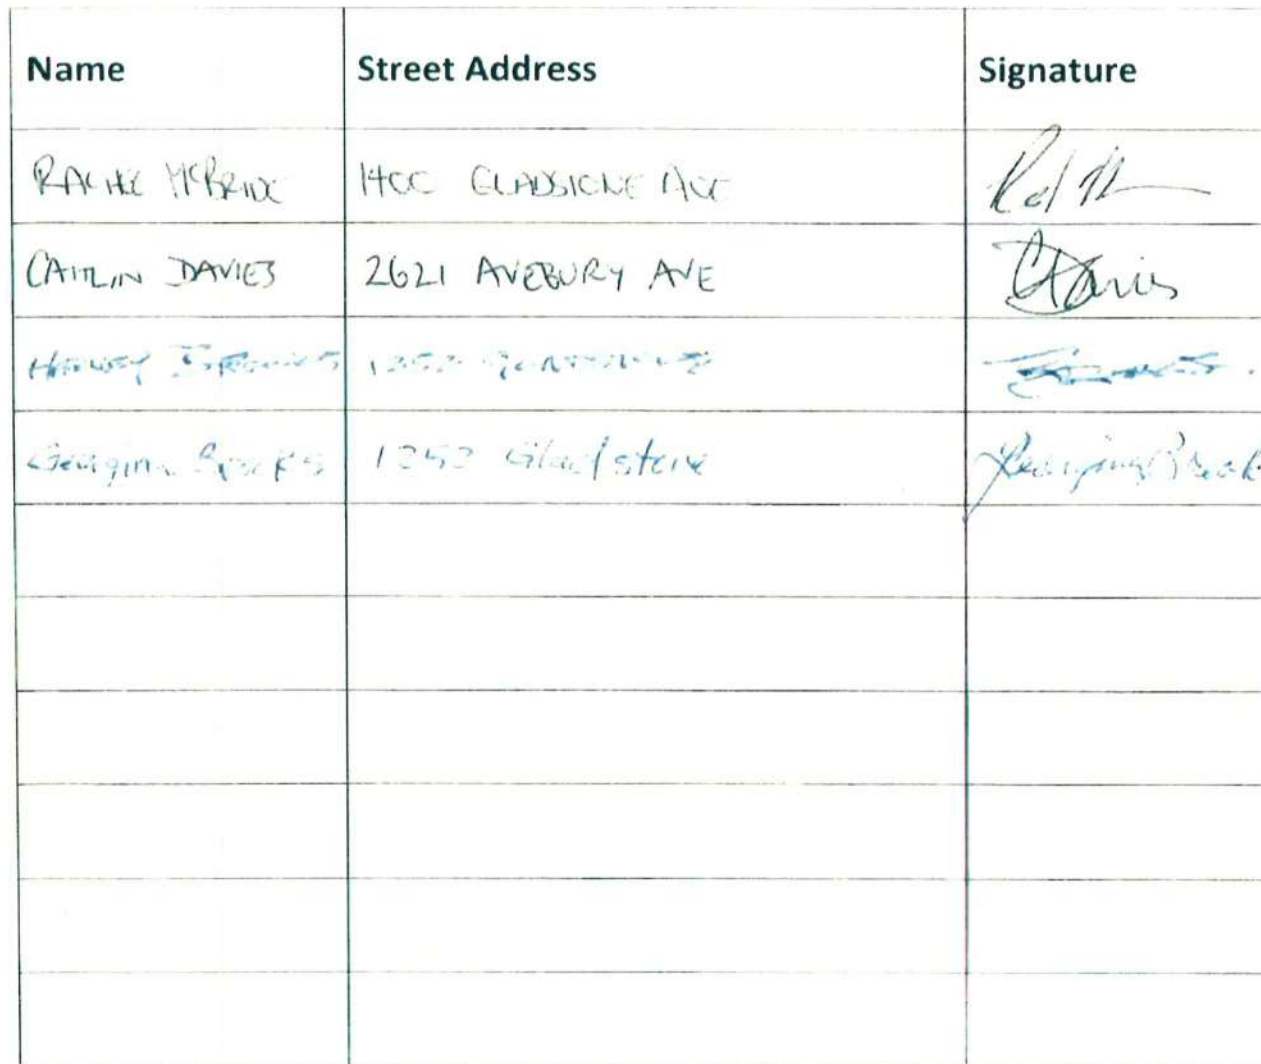 Name Street Address Signature
RACHEL MCBRIDE 1400 GLADSTONE AVE
CAITLIN DAVIES 2621 AVEBURY AVE CDavies
1252
Georgina Brooks 1252 Gladstone Georgina Brook